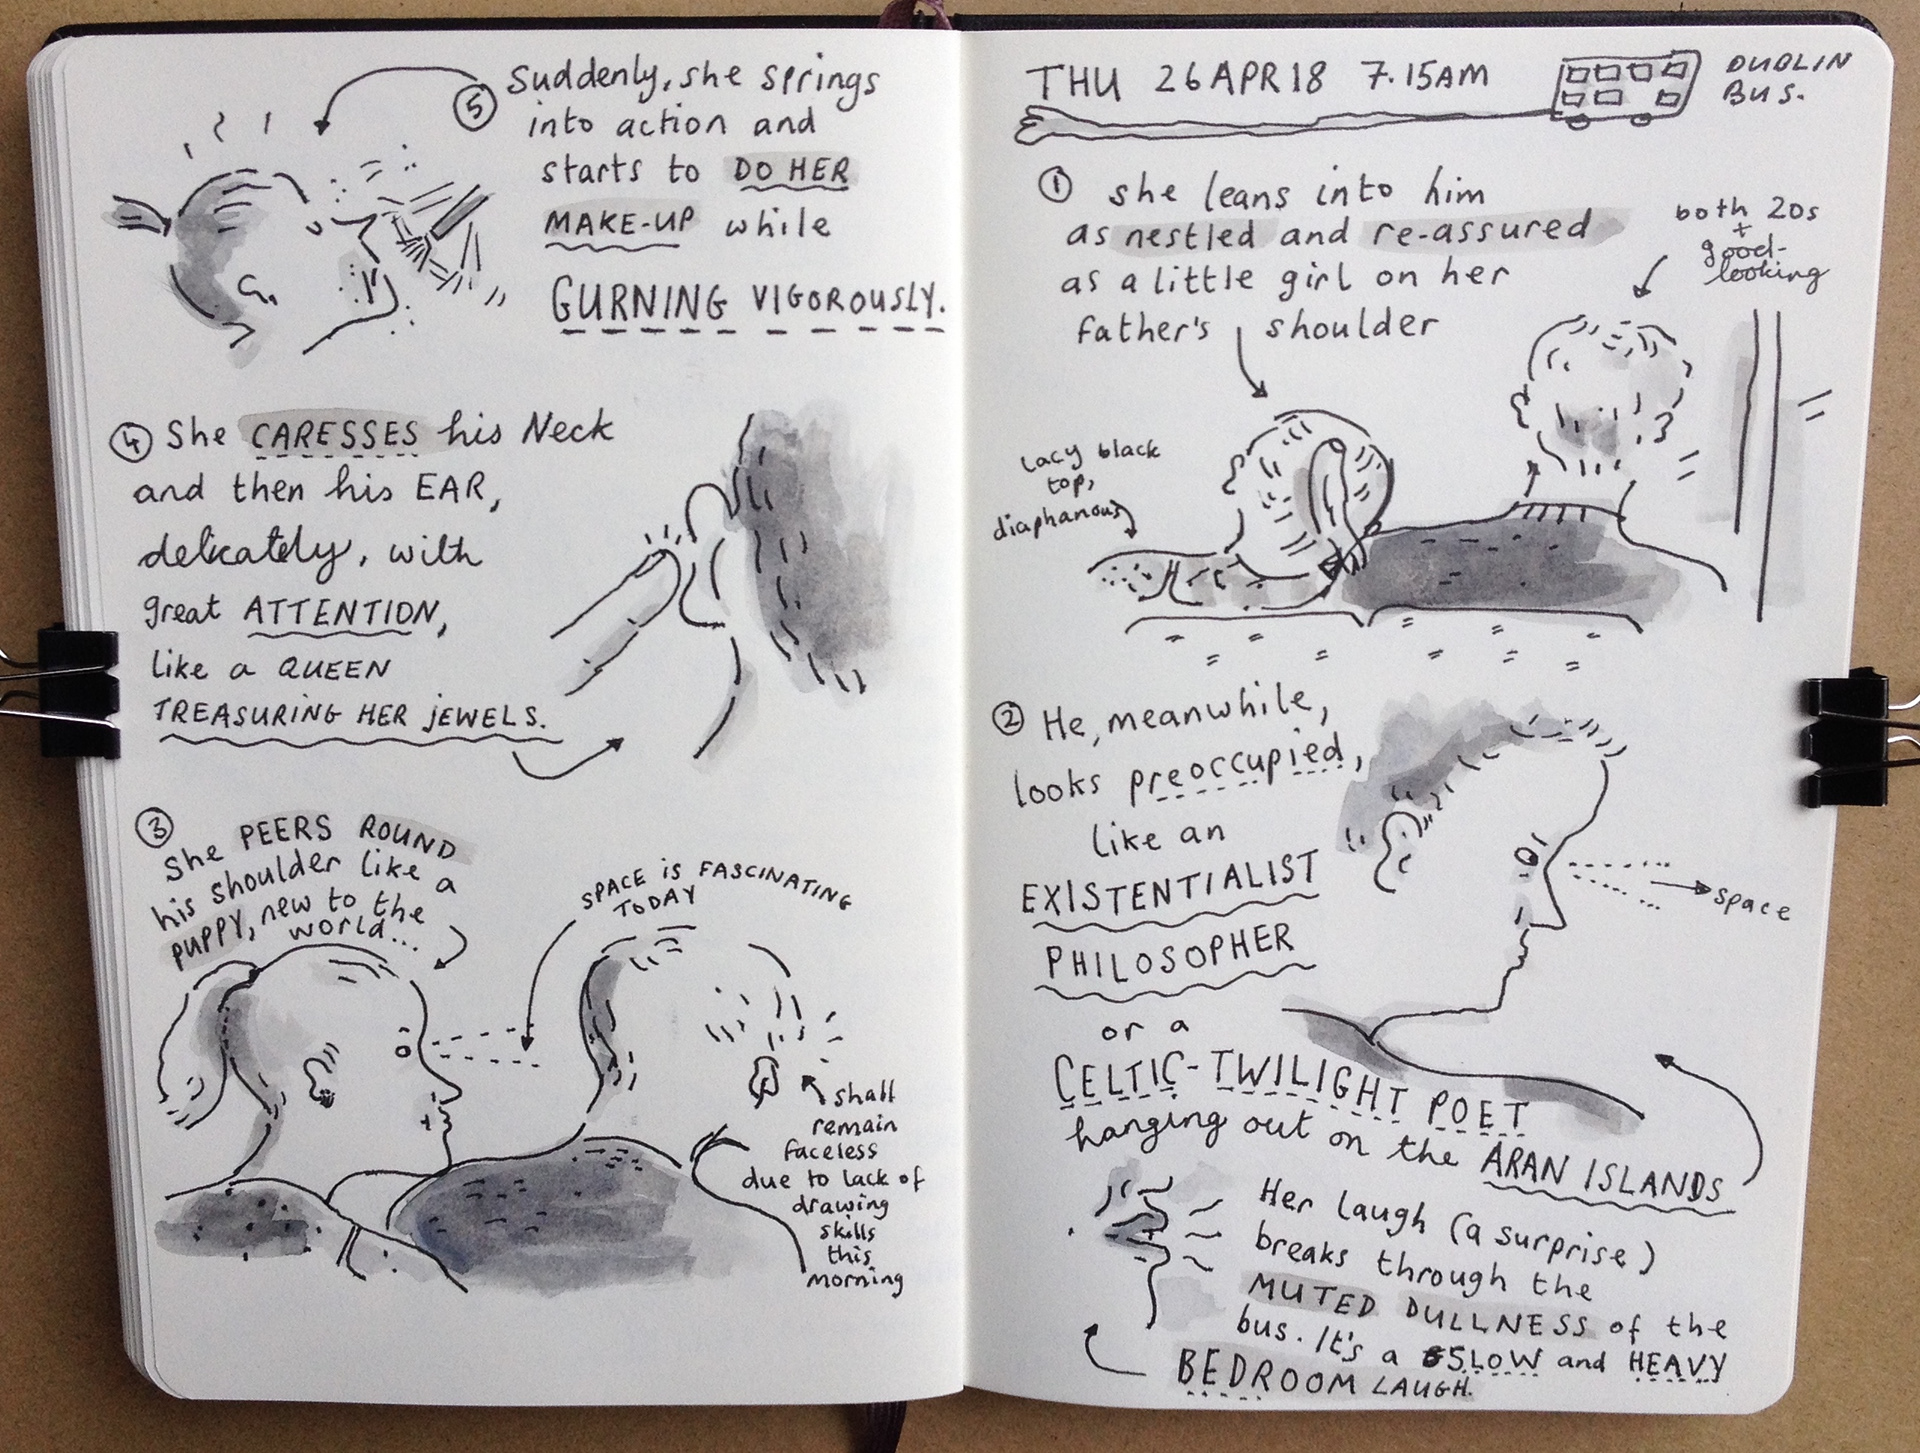 THU 26 APR 18 7.15AM
DUBLIN
BUS.
① she leans into him
as nestled and re-assured
as a little girl on her
father's shoulder
both 20s
+
good-
looking
lacy black
top,
diaphanous
② He, meanwhile,
looks preoccupied,
like an
EXISTENTIALIST
PHILOSOPHER
space
or a
CELTIC-TWILIGHT POET
hanging out on the ARAN ISLANDS
Her laugh (a surprise)
breaks through the
MUTED DULLNESS of the
bus. It's a SLOW and HEAVY
BEDROOM LAUGH.
③
She PEERS ROUND
his shoulder like a
PUPPY, new to the
world...
SPACE IS FASCINATING
TODAY
shall
remain
faceless
due to lack of
drawing
skills
this
morning
④ She CARESSES his Neck
and then his EAR,
delicately, with
great ATTENTION,
like a QUEEN
TREASURING HER JEWELS.
⑤ Suddenly, she springs
into action and
starts to DO HER
MAKE-UP while
GURNING VIGOROUSLY.